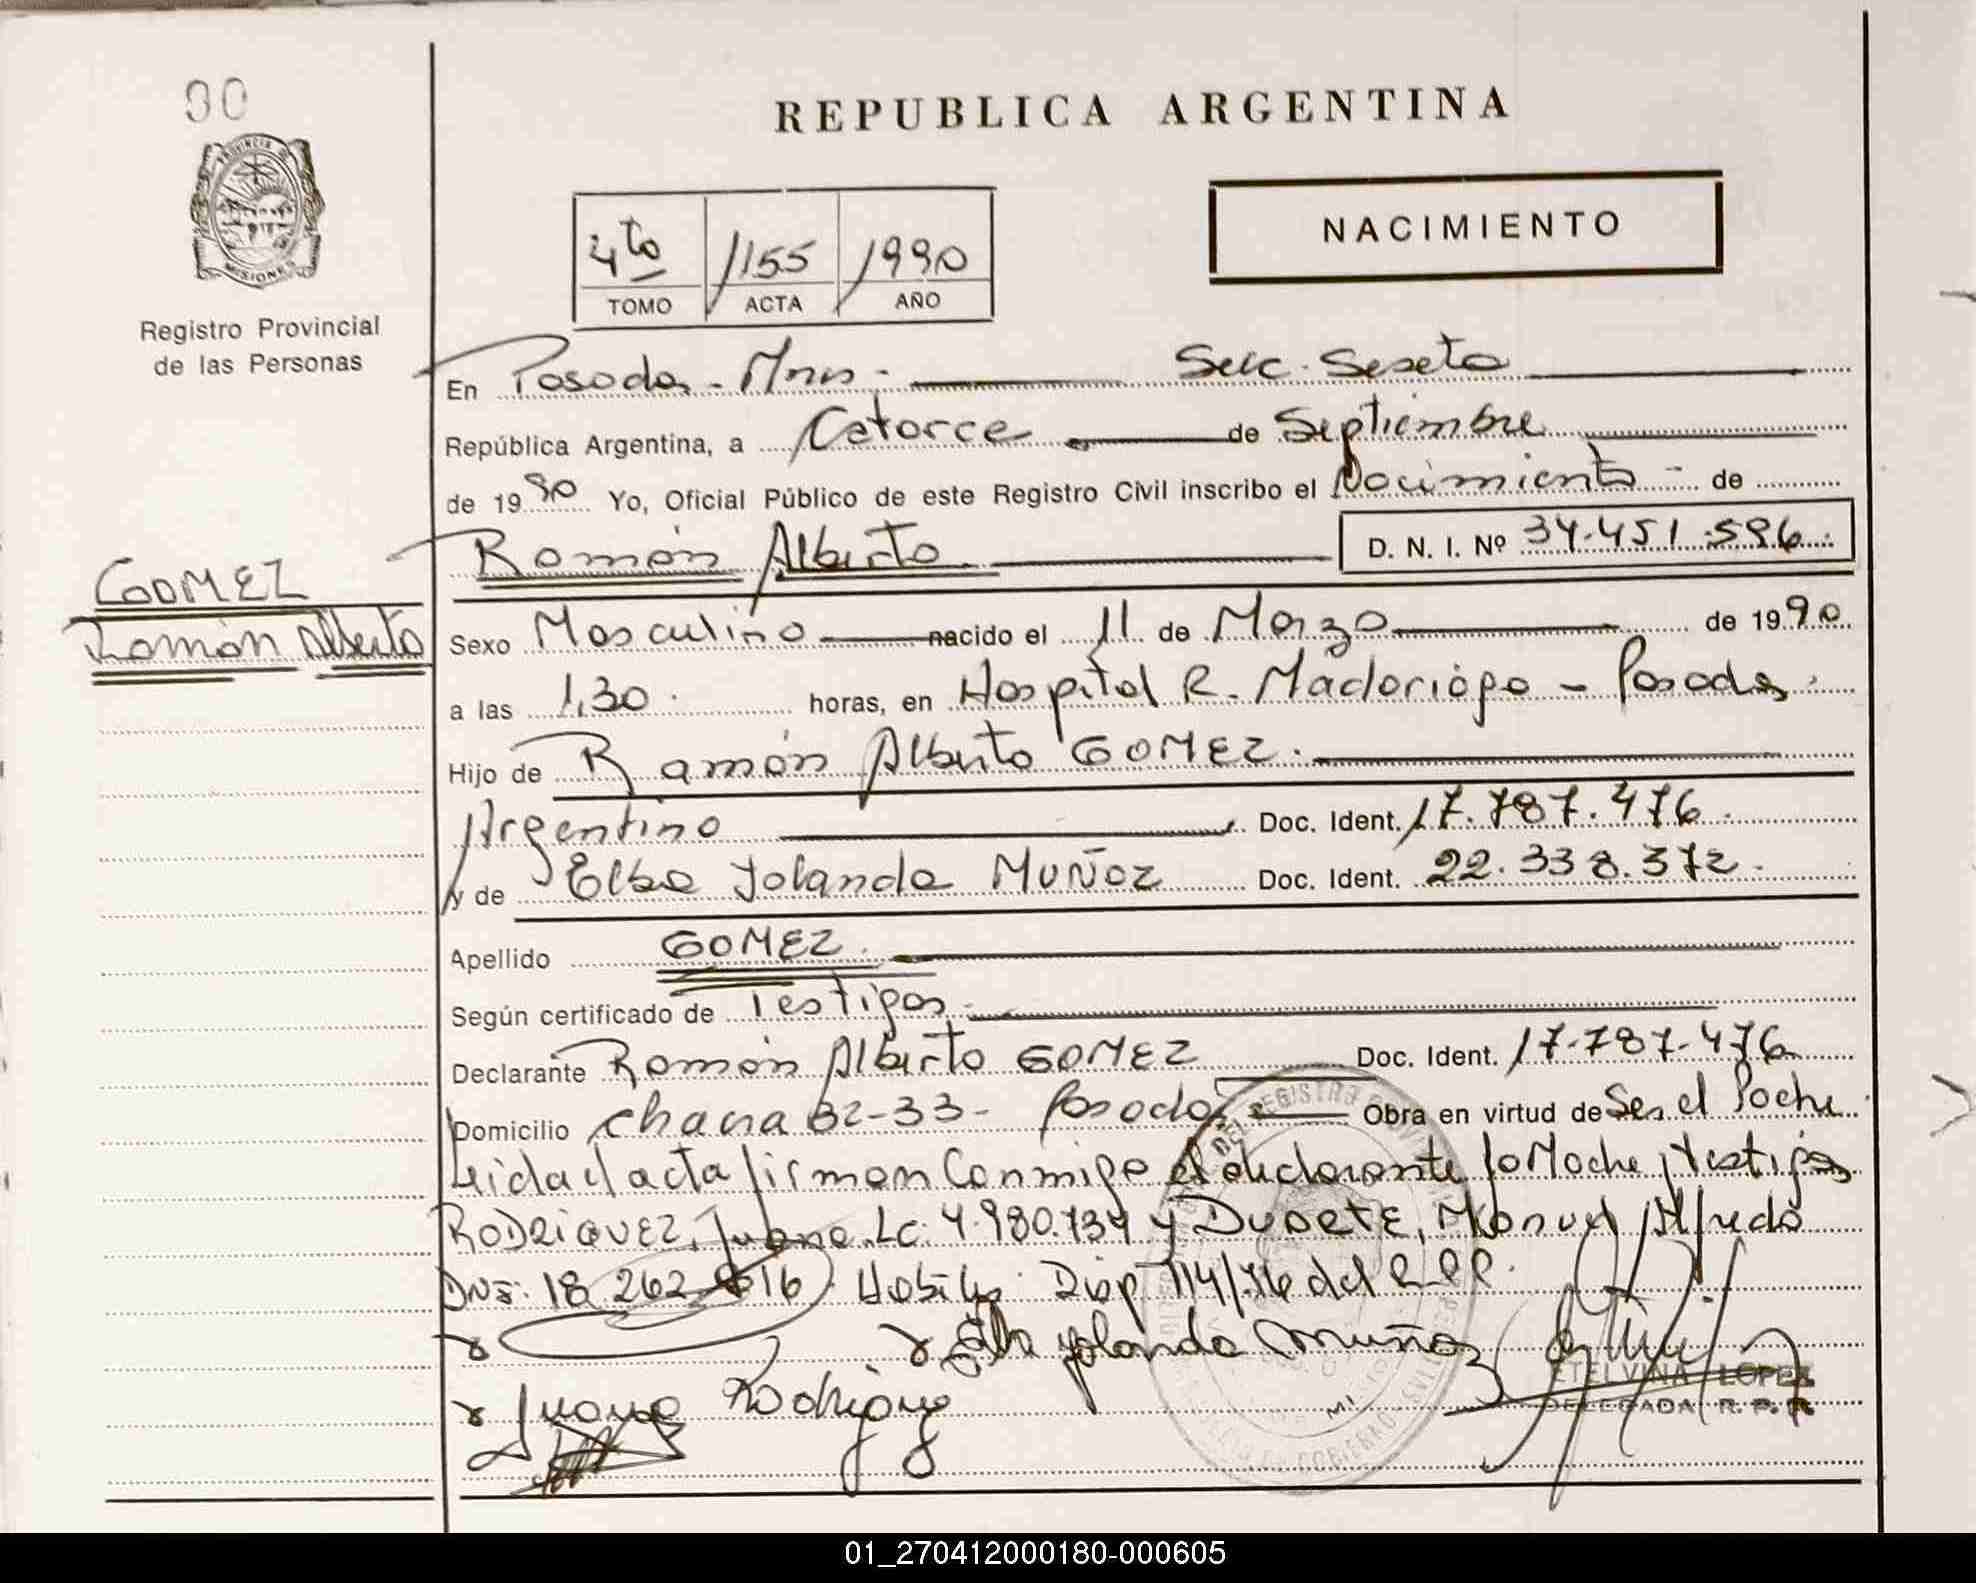 90
REPUBLICA ARGENTINA
NACIMIENTO
4to 1155 1990
TOMO ACTA AÑO
PROVINCIA DE MISIONES
Registro Provincial
de las Personas
En Posadas - Mnes - Secc. Sexta
República Argentina, a Catorce de Septiembre
de 1990 Yo, Oficial Público de este Registro Civil inscribo el Nacimiento - de
Ramón Alberto D. N. I. Nº 34.451.596.
GOMEZ
Ramón Alberto
Sexo Masculino nacido el 11 de Marzo de 1990
a las 1,30. horas, en Hospital R. Madariaga - Posadas.
Hijo de Ramón Alberto GOMEZ.
Argentino Doc. Ident. 17.787.476.
y de Elba Yolanda MUÑOZ Doc. Ident. 22.338.372.
Apellido GOMEZ.
Según certificado de Testigos.
Declarante Ramón Alberto GOMEZ Doc. Ident. 17.787.476
Domicilio Chacra 32-33- Posadas Obra en virtud de Ser el Padre
Leida el acta firman Conmigo el declarante la Madre y testigos
RODRIGUEZ, Juana Lc. 4.980.734 y DUARTE, Manuel Alfredo
DNI: 18.262. 16 Disp 114/76 del R.P.P.
Elba Yolanda Muñoz
ETELVINA LOPEZ
DELEGADA R. P. P.
Juana Rodriguez
01_270412000180-000605